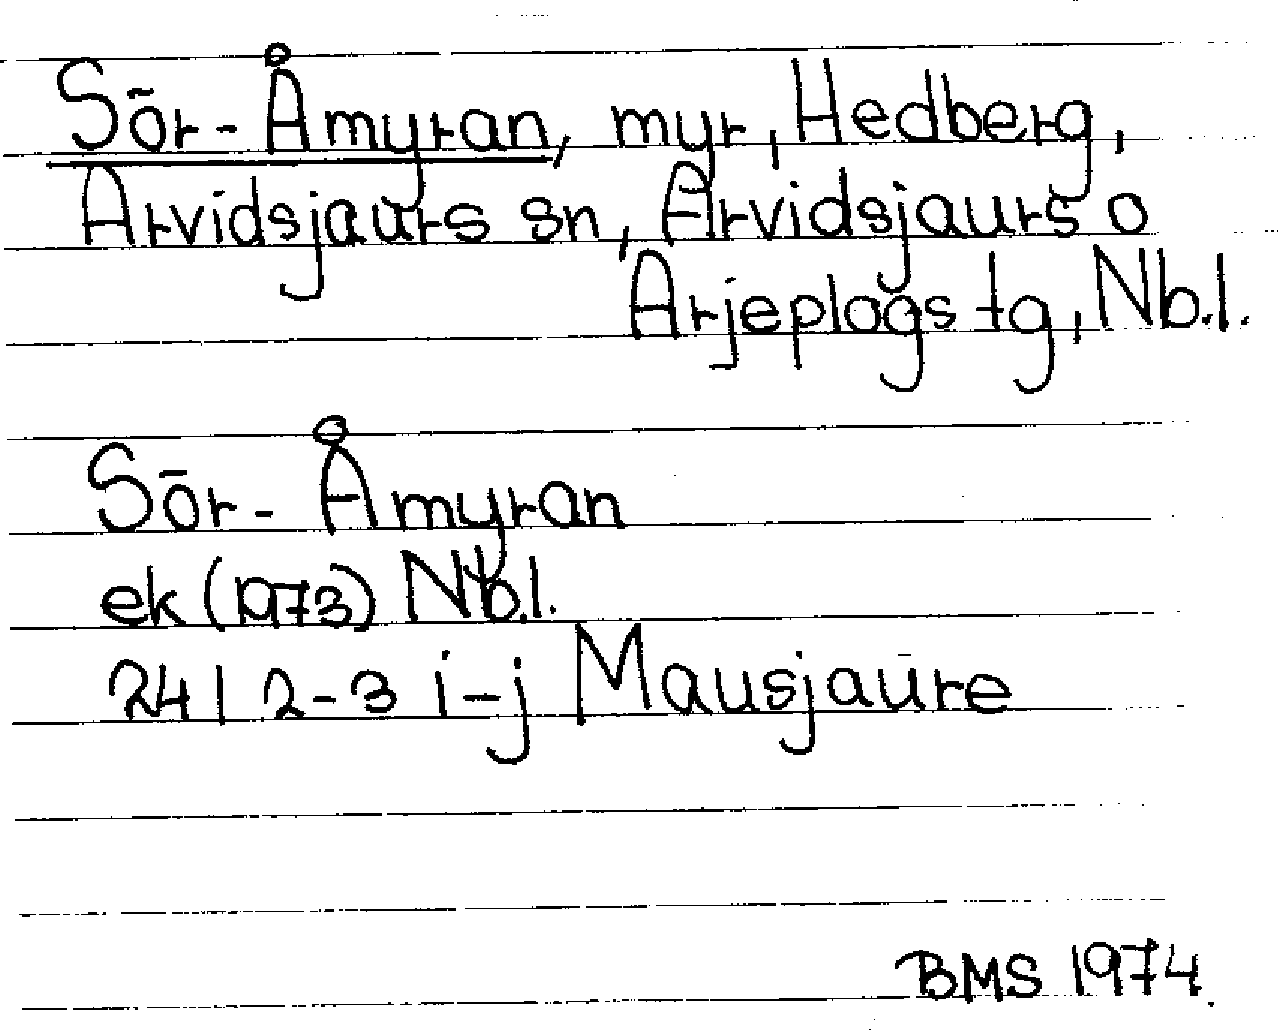 Sör-Åmyran, myr, Hedberg,
Arvidsjaurs sn, Arvidsjaurs o
Arjeplogs tg, Nb.l.
Sör-Åmyran
ek (1973) Nb.l.
24 I 2-3 i-j Mausjaure
BMS 1974.